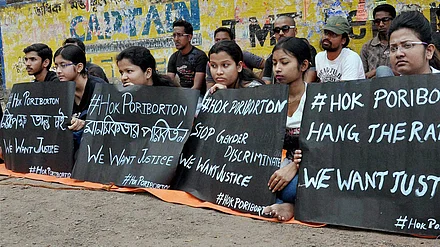 CAPTAIN
#HOK PORIBORTON
WE WANT JUSTICE
#HOK PORIBORTON
মানসিকতার পরিবর্তন
WE WANT JUSTICE
#HOK PORIBORTON
#HOK PORIBORTON
STOP GENDER
DISCRIMINATE
WE WANT JUSTICE
#HOK PORIBORTON
#HOK PORIBO
HANG THE RA
WE WANT JUST
#HOK PORIBOR